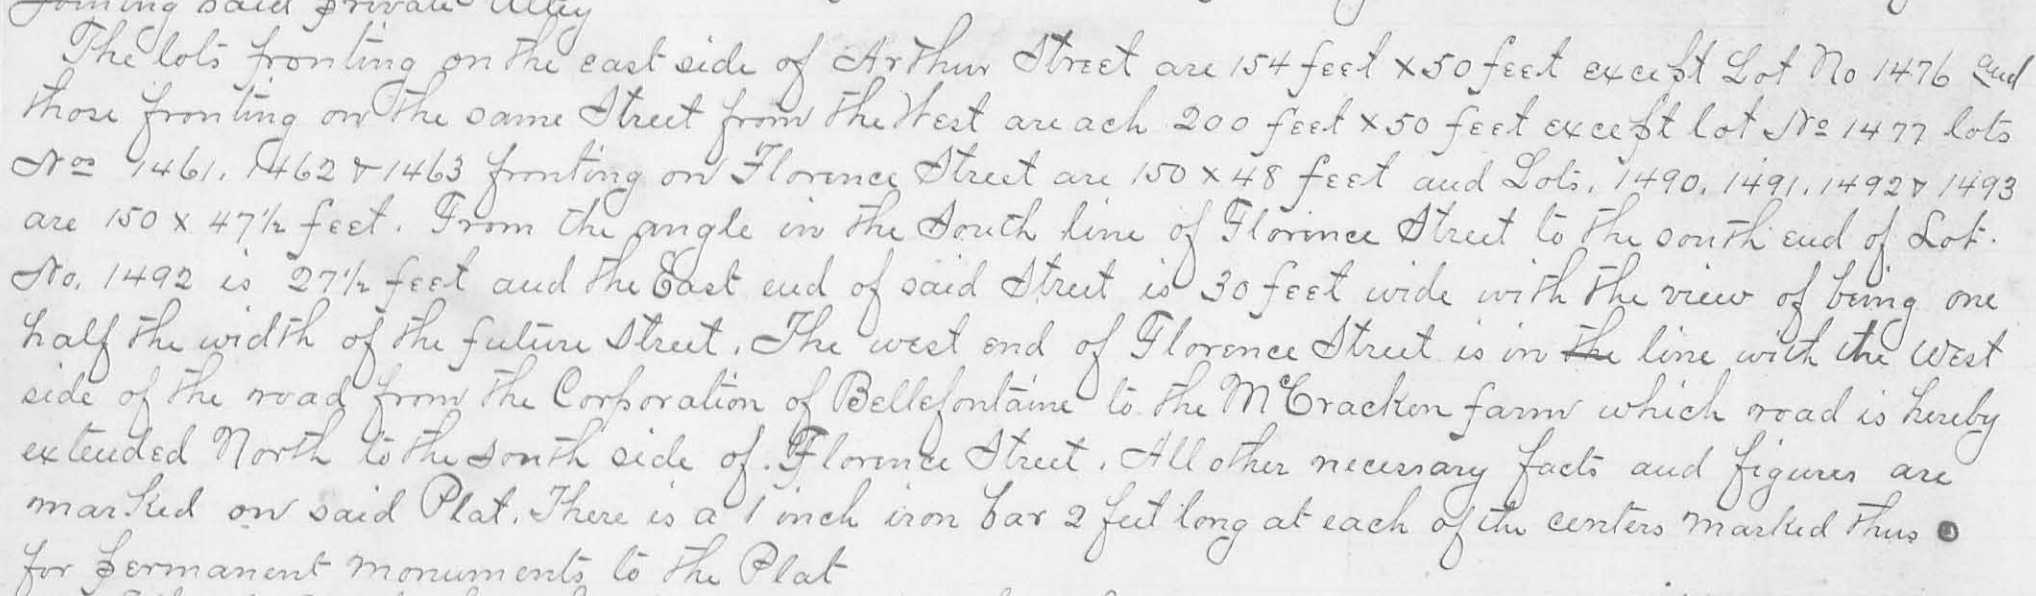 joining said private Alley
The lots fronting on the east side of Arthur Street are 154 feet x 50 feet except Lot No 1476 and
those fronting on the same Street from the West are ach 200 feet x 50 feet except lot No 1477 lots
Nos 1461, 1462 & 1463 fronting on Florence Street are 150 x 48 feet and Lots. 1490, 1491, 1492 & 1493
are 150 x 47½ feet. From the angle in the South line of Florence Street to the south end of Lot.
No. 1492 is 27½ feet and the East end of said Street is 30 feet wide with the view of being one
half the width of the future Street. The west end of Florence Street is in the line with the West
side of the road from the Corporation of Bellefontaine to the McCracken farm which road is hereby
extended North to the south side of. Florence Street. All other necessary facts and figures are
marked on said Plat. There is a 1 inch iron bar 2 feet long at each of the centers marked thus
for permanent monuments to the Plat